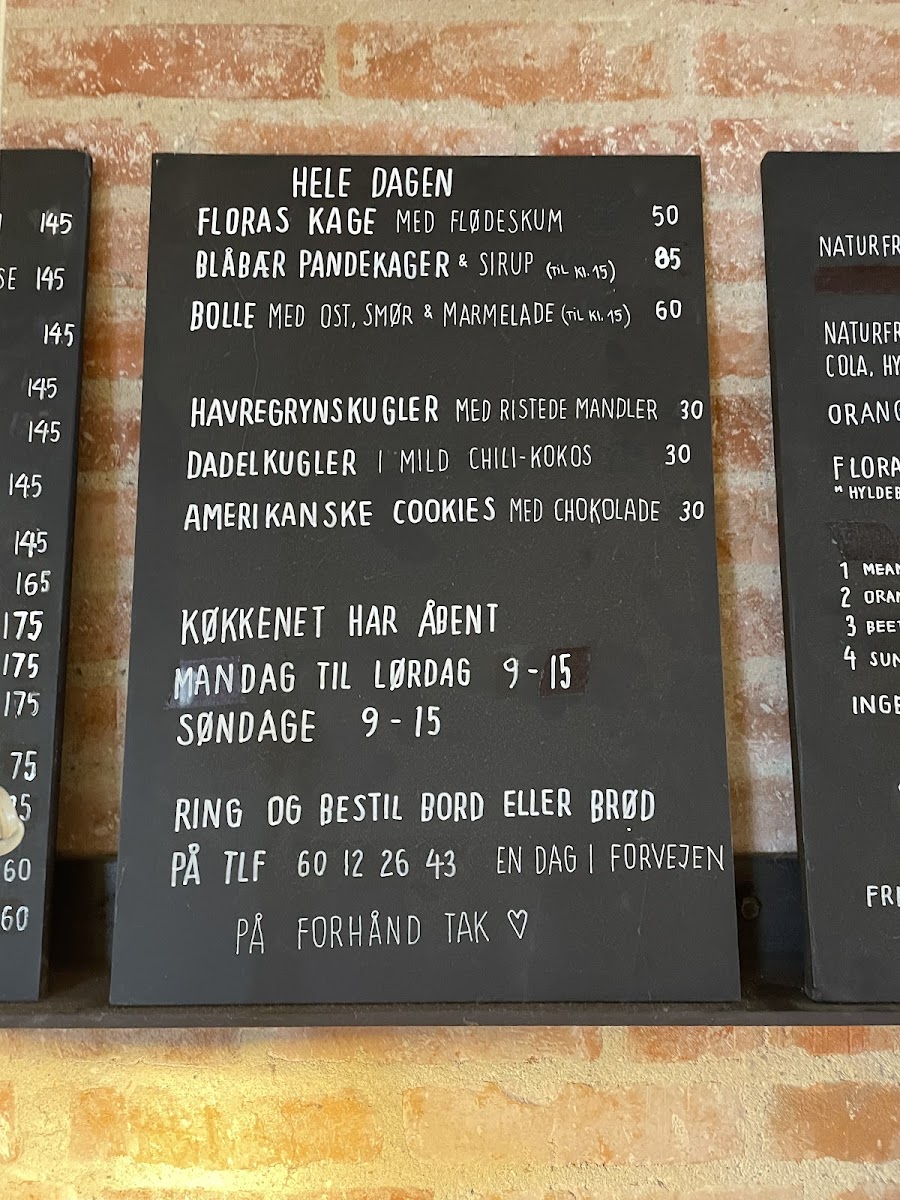 145
SE 145
145
145
145
145
145
165
175
175
175
75
60
60
HELE DAGEN
FLORAS KAGE MED FLØDESKUM 50
BLÅBÆR PANDEKAGER & SIRUP (TIL KL. 15) 85
BOLLE MED OST, SMØR & MARMELADE (TIL KL. 15) 60
HAVREGRYNSKUGLER MED RISTEDE MANDLER 30
DADELKUGLER I MILD CHILI-KOKOS 30
AMERIKANSKE COOKIES MED CHOKOLADE 30
KØKKENET HAR ÅBENT
MANDAG TIL LØRDAG 9-15
SØNDAGE 9-15
RING OG BESTIL BORD ELLER BRØD
PÅ TLF 60 12 26 43 EN DAG I FORVEJEN
PÅ FORHÅND TAK ♡
NATURFR
NATURFR
COLA, HY
ORANG
FLORA
" HYLDEB
1 MEAN
2 ORAN
3 BEET
4 SUN
INGE
FRI